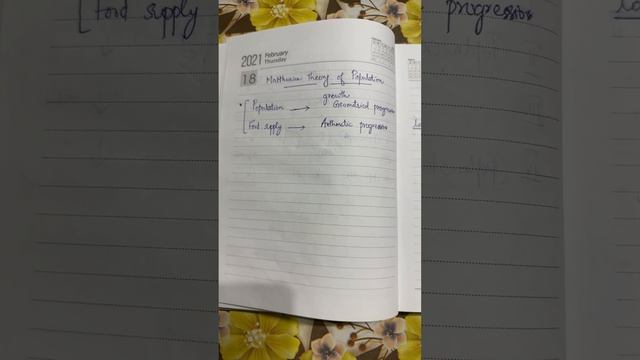 [Food supply
progression
2021 February
Thursday
18 Malthusian Theory of Population
growth
* [Population → Geometrical progression
[Food supply → Arithmetic progression